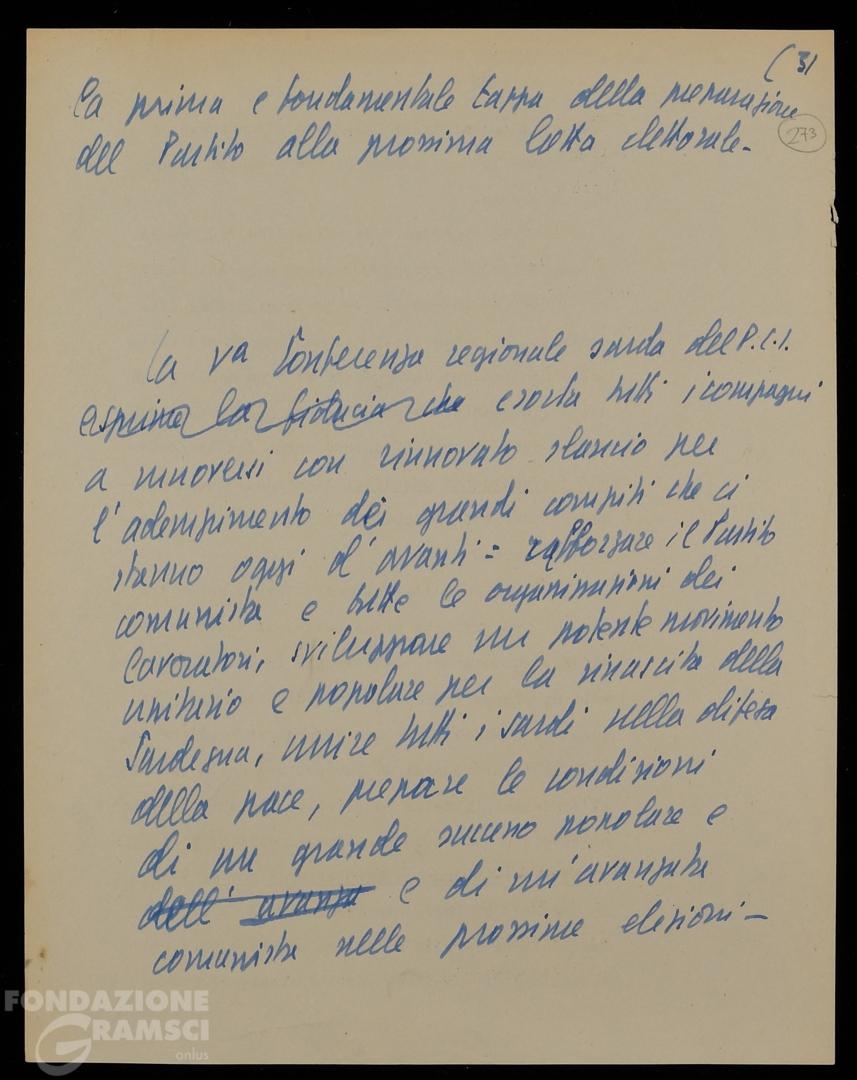 (31
la prima e fondamentale tappa della preparazione
273
del Partito alla prossima lotta elettorale-
la Va Conferenza regionale sarda del P.C.I.
esprime la fiducia che esorta tutti i compagni
a muoversi con rinnovato slancio per
l'adempimento dei grandi compiti che ci
stanno oggi d'avanti = rafforzare il Partito
comunista e tutte le organizzazioni dei
lavoratori, sviluppare un potente movimento
unitario e popolare per la rinascita della
Sardegna, unire tutti i sardi nella difesa
della pace, preparare le condizioni
di un grande successo popolare e
dell'avanza e di un'avanzata
comunista nelle prossime elezioni-
FONDAZIONE
GRAMSCI
onlus